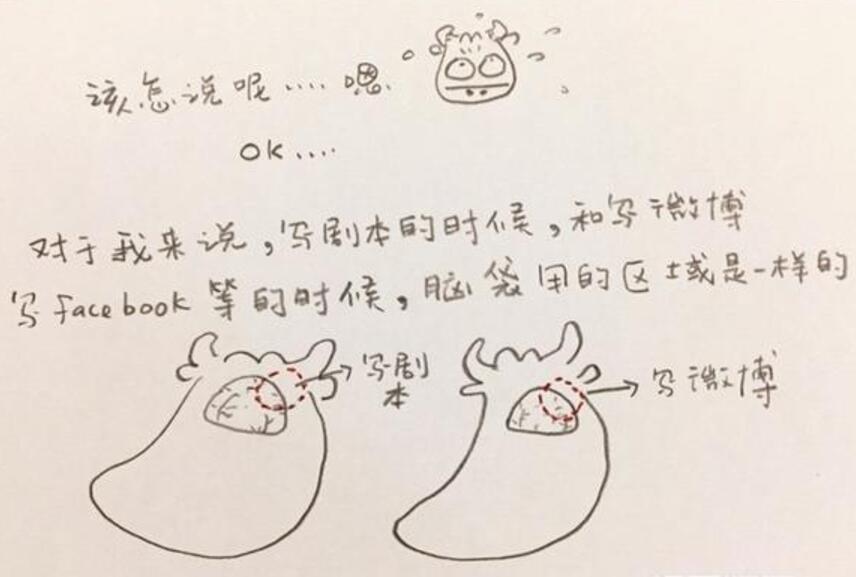 该怎么说呢....嗯
OK....
对于我来说,写剧本的时候,和写微博
写facebook等的时候,脑袋用的区域是一样的
写剧
本
写微博